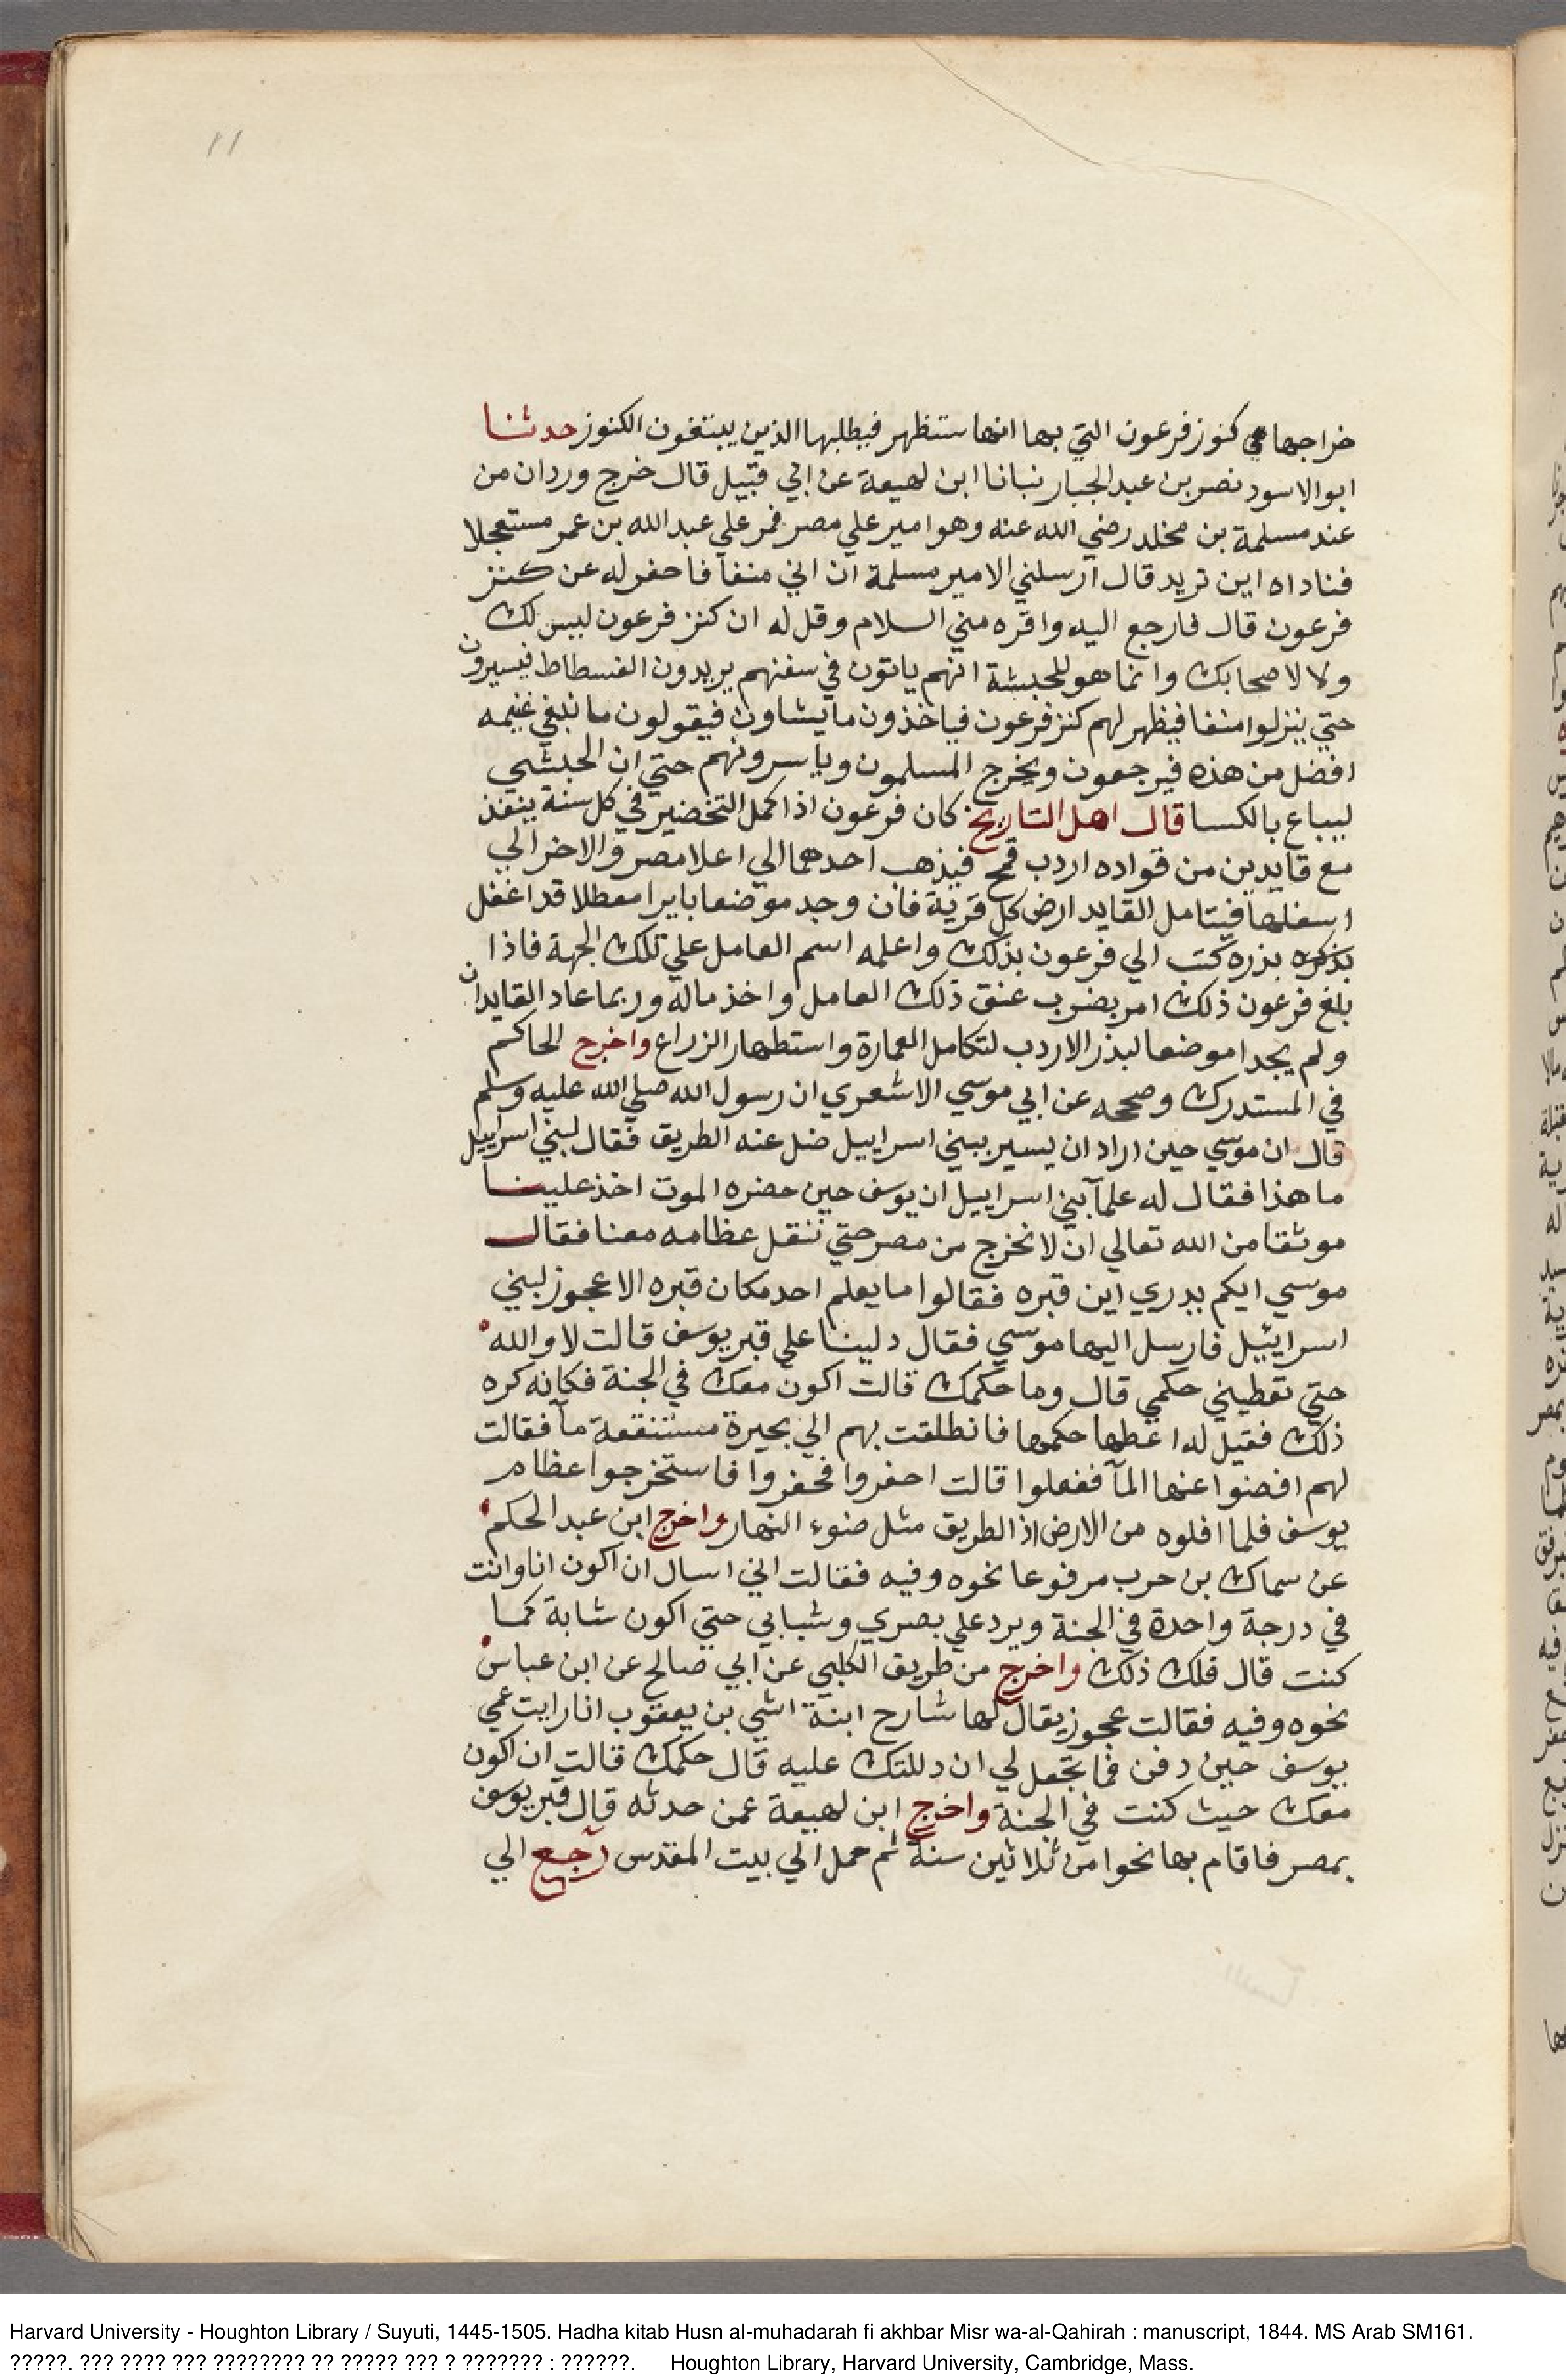 ١١
خراجها هي كنوز فرعون التي بها انها ستظهر فيطلبها الذين يبتغون الكنوز حدثنا
ابو الاسود نصر بن عبد الجبار نبانا ابن لهيعة عن ابي قبيل قال خرج وردان من
عند مسلمة بن مخلد رضي الله عنه وهو امير علي مصر فمر علي عبد الله بن عمر مستعجلا
فناداه اين تريد قال ارسلني الامير مسلمة ان اتي منفا فاحفر له عن كنز
فرعون قال فارجع اليه واقره مني السلام وقل له ان كنز فرعون ليس لك
ولا لاصحابك وانما هو للحبشة انهم ياتون في سفنهم يريدون الفسطاط فيسيرون
حتي ينزلوا منفا فيظهر لهم كنز فرعون فياخذون ما يشاون فيقولون ما نبغي غنيمه
افضل من هذه فيرجعون ويخرج المسلمون وياسرونهم حتي ان الحبشي
ليباع بالكسا قال اهل التاريخ كان فرعون اذا كمل التخضير في كل سنة ينفذ
مع قايدين من قواده اردب قمح فيذهب احدهما الي اعلا مصر والاخر الي
اسفلها فيتامل القايد ارض كل قرية فان وجد موضعا بايرا معطلا قد اغفل
بذره كتب الي فرعون بذلك واعلمه اسم العامل علي تلك الجهة فاذا
بلغ فرعون ذلك امر بضرب عنق ذلك العامل واخذ ماله وربما عاد القايدان
ولم يجدا موضعا لبذر الاردب لتكامل العمارة واستظهار الزراع واخرج الحاكم
في المستدرك وصححه عن ابي موسي الاشعري ان رسول الله صلي الله عليه وسلم
قال ان موسي حين اراد ان يسير ببني اسراييل ضل عنه الطريق فقال لبني اسراييل
ما هذا فقال له علمآ بني اسراييل ان يوسف حين حضره الموت اخذ علينا
موثقا من الله تعالي ان لا نخرج من مصر حتي ننقل عظامه معنا فقال
موسي ايكم يدري اين قبره فقالوا ما يعلم احد مكان قبره الا عجوز لبني
اسرائيل فارسل اليها موسي فقال دلينا علي قبر يوسف قالت لا والله
حتي تعطيني حكمي قال وما حكمك قالت اكون معك في الجنة فكانه كره
ذلك فقيل له اعطها حكمها فانطلقت بهم الي بحيرة مستنقعة مآ فقالت
لهم افضنوا عنها المآ ففعلوا قالت احفروا فحفروا فاستخرجوا عظام
يوسف فلما اقلوه من الارض اذ الطريق مثل ضوء النهار واخرج ابن عبد الحكم
عن سماك بن حرب مرفوعا نحوه وفيه فقالت اني اسال ان اكون انا وانت
في درجة واحدة في الجنة ويرد علي بصري وشبابي حتي اكون شابة كما
كنت قال فلك ذلك واخرج من طريق الكلبي عن ابي صالح عن ابن عباس
نحوه وفيه فقالت عجوز يقال لها شارح ابنة اشي بن يعقوب انا رايت عمي
يوسف حين دفن فما تجعل لي ان دللتك عليه قال حكمك قالت ان اكون
معك حيث كنت في الجنة واخرج ابن لهيعة عمن حدثه قال قبر يوسف
بمصر فاقام بها نحوا من ثلاثين سنة ثم حمل الي بيت المقدس رجع الي
Harvard University - Houghton Library / Suyuti, 1445-1505. Hadha kitab Husn al-muhadarah fi akhbar Misr wa-al-Qahirah : manuscript, 1844. MS Arab SM161.
?????. ??? ???? ??? ???????? ?? ????? ??? ? ??????? : ??????. Houghton Library, Harvard University, Cambridge, Mass.